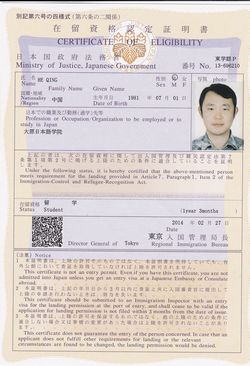 別記第六号の四様式(第六条の二関係)
在留資格認定証明書
CERTIFICATE OF ELIGIBILITY
日本国政府法務省
Ministry of Justice, Japanese Government
東学認P
氏名 HE QING
性別 Sex M F
写真 photo
Name Family Name Given Name
国籍・地域 中国
Nationality/Region
1981 年 07 月 01 日
Date of Birth
日本での職業及び(通学)先等
Profession or Occupation/Organization to be employed or to study in Japan
大原日本語学院
Under the following status, it is hereby certified that the above-mentioned person meets requirement for the landing provided in Article 7, Paragraph 1, Item 2 of the Immigration-Control and Refugee-Recognition Act.
在留資格 留学
Status Student
(1year 3months)
2014 年 02 月 27 日
Director General of Tokyo
東京 入国管理局長
Regional Immigration Bureau
(注意) Notice
This certificate is not an entry permit. Even if you have this certificate, you are not admitted into Japan unless you get an entry visa at an Embassy or Consulate of Japan.
This certificate should be submitted to an Immigration Inspector with an entry visa for the landing permission at the port of entry, and shall cease to be valid if the application for landing permission is not filed within 3 months from the date of issue.
This certificate does not guarantee the entry of the person concerned. In case that an applicant does not fulfill other requirements for landing or the relevant circumstances are found to be changed, the landing permission would be denied.